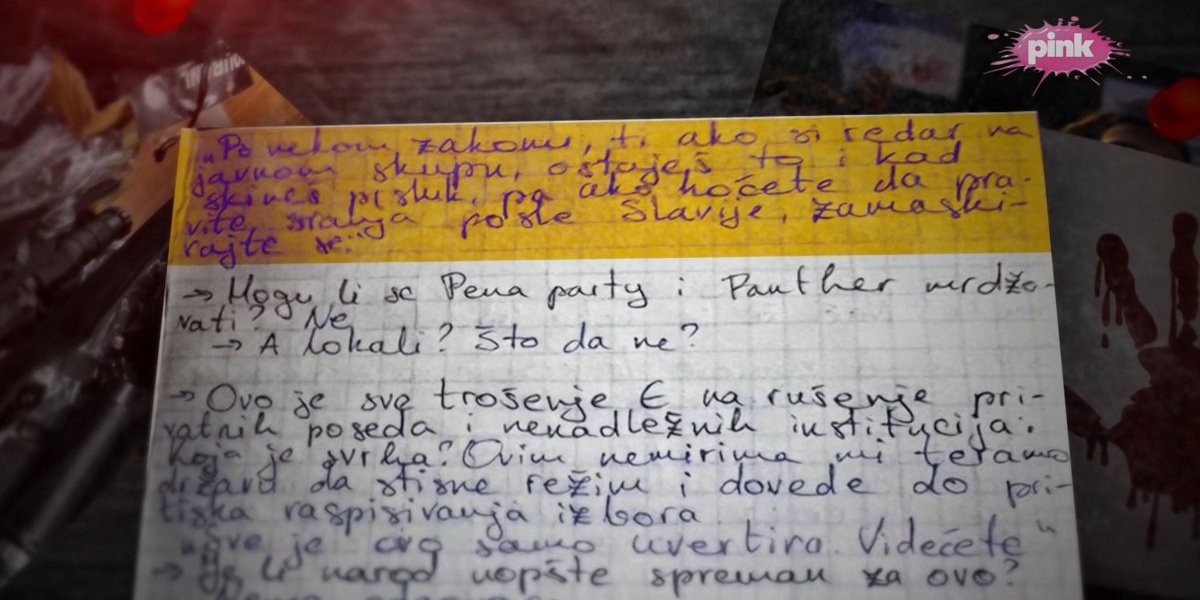 pink
„Po nekom zakonu, ti ako si redar na
javnom skupu, ostaješ to i kad
skineš prsluk, pa ako hoćete da pra-
vite sranja posle Slavije, zamaski-
rajte se"
→ Mogu li se Pena party i Panther mrdžo-
nati? Ne
→ A lokali? Što da ne?
→ Ovo je sve trošenje € na rušenje pri-
vatnih poseda i nenadležnih institucija.
Koja je svrha? Ovim nemirima mi teramo
državu da stisne režim i dovede do pri-
tiska raspisivanja izbora
"Sve je ovo samo uvertira. Videćete"
→ Je li narod uopšte spreman za ovo?